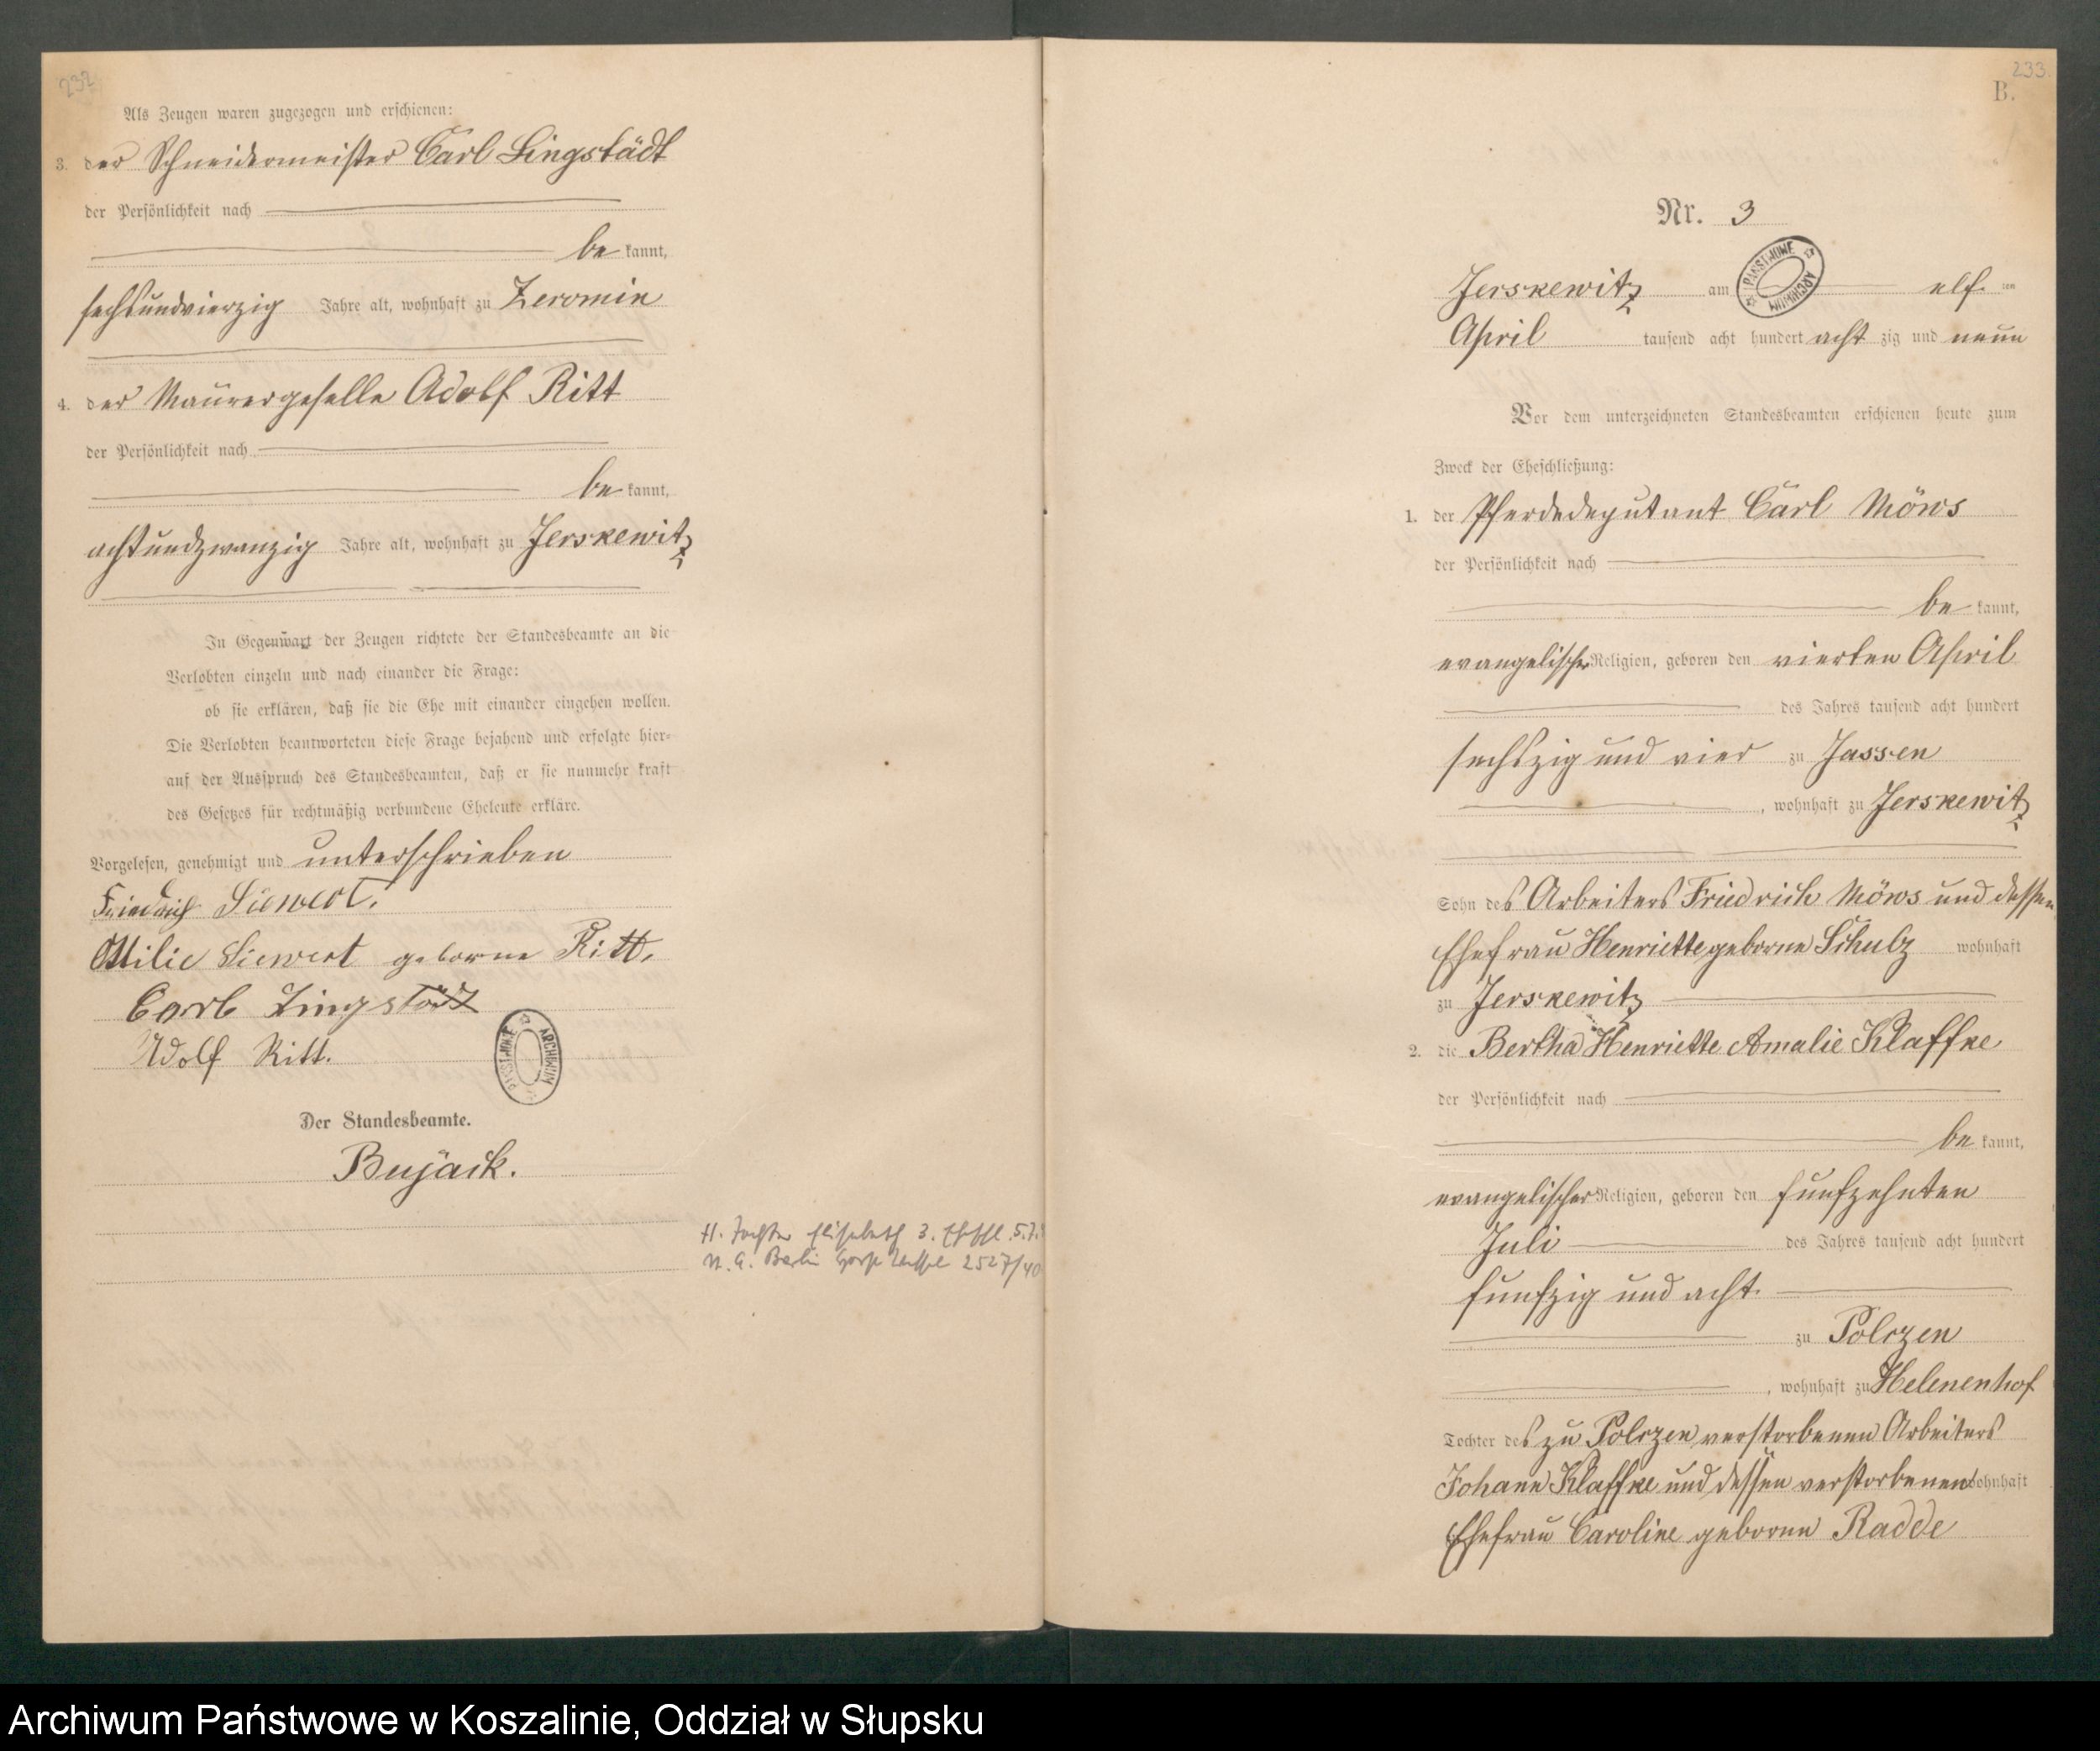 232
Als Zeugen waren zugezogen und erschienen:
3. der Schneidermeister Carl Lingstädt
der Persönlichkeit nach
be kannt,
sechsundvierzig Jahre alt, wohnhaft zu Zeromin
4. der Maurergeselle Adolf Ritt
der Persönlichkeit nach
be kannt,
achtundzwanzig Jahre alt, wohnhaft zu Jerskewitz
In Gegenwart der Zeugen richtete der Standesbeamte an die
Verlobten einzeln und nach einander die Frage:
ob sie erklären, daß sie die Ehe mit einander eingehen wollen.
Die Verlobten beantworteten diese Frage bejahend und erfolgte hier-
auf der Ausspruch des Standesbeamten, daß er sie nunmehr kraft
des Gesetzes für rechtmäßig verbundene Eheleute erkläre.
Vorgelesen, genehmigt und unterschrieben
Friedrich Siewert.
Ottilie Siewert geborne Ritt.
Carl Lingstädt
Adolf Ritt.
PAŃSTWOWE ARCHIWUM
Der Standesbeamte.
Bujack.
H. Tochter Elisabeth 3. 5.7.
St. A. Berlin 2527/40
233.
B.
Nr. 3
PAŃSTWOWE ARCHIWUM
Jerskewitz am elf ten
April tausend acht hundert acht zig und neun
Vor dem unterzeichneten Standesbeamten erschienen heute zum
Zweck der Eheschließung:
1. der Pferdedeputant Carl Möws
der Persönlichkeit nach
be kannt,
evangelischer Religion, geboren den vierten April
des Jahres tausend acht hundert
sechszig und vier zu Jassen
, wohnhaft zu Jerskewitz
Sohn des Arbeiters Friedrich Möws und dessen
Ehefrau Henriette geborne Schulz wohnhaft
zu Jerskewitz
2. die Bertha Henriette Amalie Klaffke
der Persönlichkeit nach
be kannt,
evangelischer Religion, geboren den funfzehnten
Juli des Jahres tausend acht hundert
funfzig und acht
zu Polczen
, wohnhaft zu Helenenhof
Tochter des zu Polczen verstorbenen Arbeiters
Johann Klaffke und dessen verstorbenen wohnhaft
Ehefrau Caroline geborne Radde
Archiwum Państwowe w Koszalinie, Oddział w Słupsku